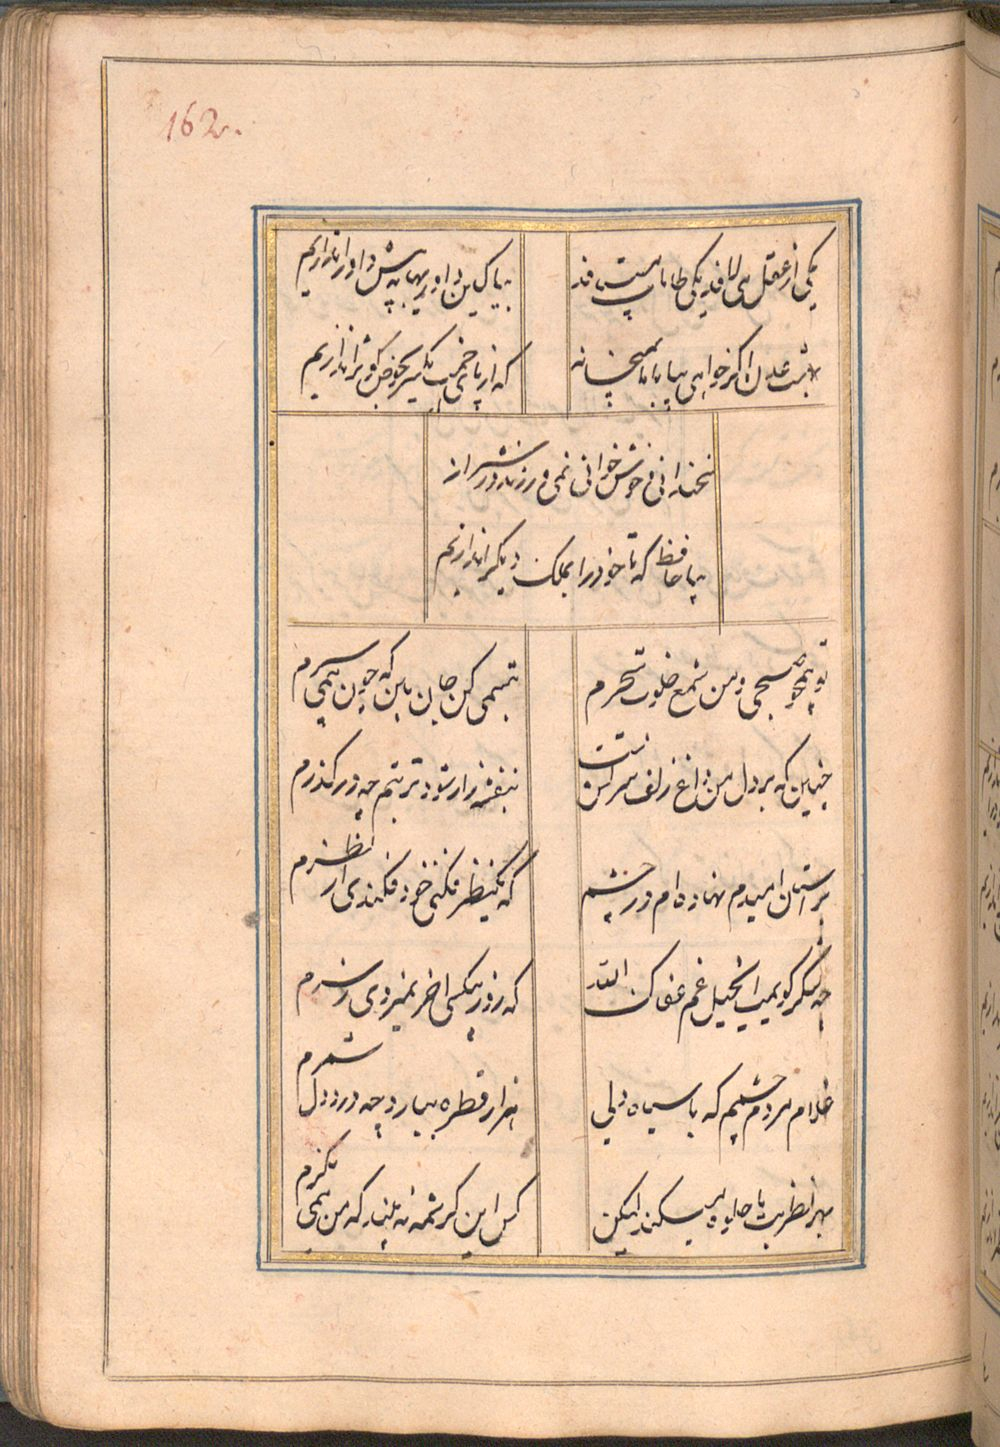 162.
یکی از عقل می لافد یکی طامات می بافد
بیا کاین داوریها را به پیش داور اندازیم
بهشت عدن اگر خواهی بیا با ما بمیخانه
که از پای خمت یکسر بحوض کوثر اندازیم
سخندانی و خوش خوانی نمی ورزند در شیراز
بیا حافظ که تا خود را بملک دیگر اندازیم
تو همچو صبحی و من شمع خلوت سحرم
تبسمی کن و جان بین که چون همی سپرم
چنین که بر دل من داغ زلف سرکش تست
بنفشه زار شود تربتم چه در گذرم
بر آستان امیدم نهاده ام در چشم
که یک نظر فکنی خود فکندی از نظرم
چه شکر گویمت ای خیل غم عفاک الله
که روز بیکسی آخر نمیروی ز سرم
غلام مردم چشمم که با سیاه دلی
هزار قطره ببارد چه درد دل شمرم
بهر نظر بت ما جلوه میکند لیکن
کس این کرشمه نه بیند که من همی نگرم